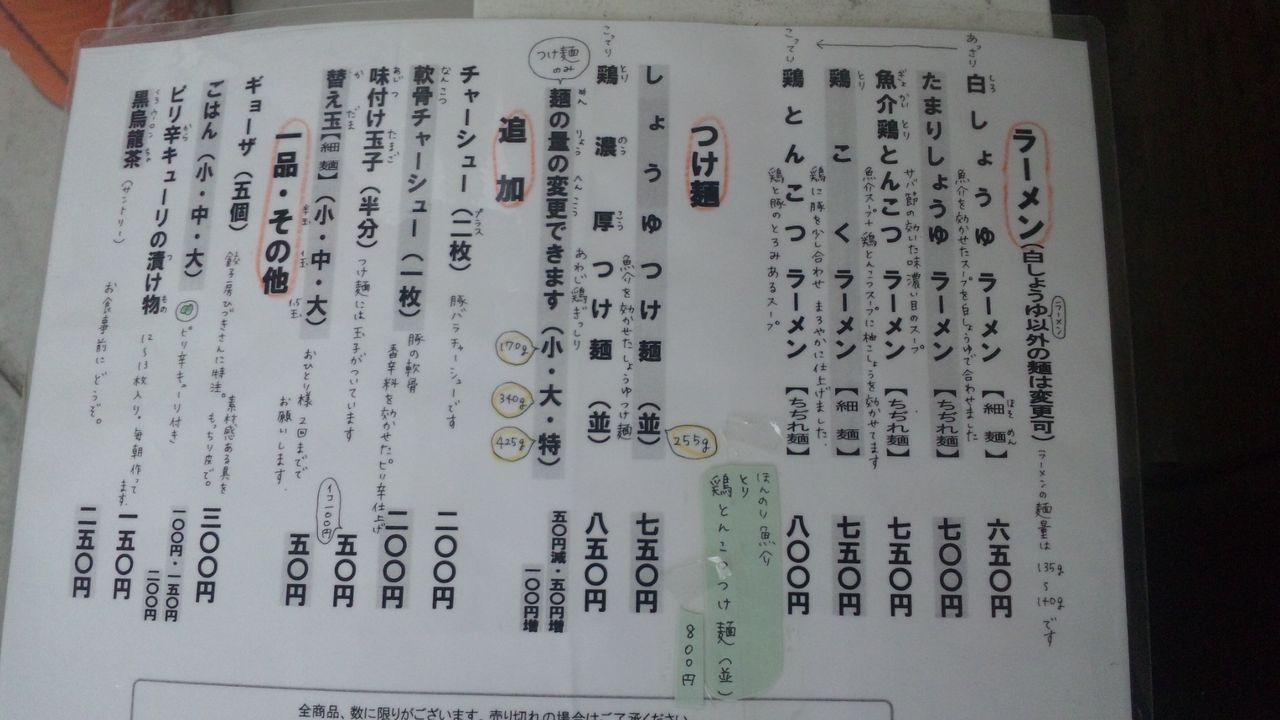 ラーメン(白しょうゆ以外の麺は変更可)
ラーメン
ラーメンの麺量は 135g〜140gです
あっさり
こってり
白しょうゆラーメン【細麺】 六五〇円
しろ
ほそめん
魚介を効かせたスープを白しょうゆで合わせました
たまりしょうゆラーメン【ちぢれ麺】 七〇〇円
サバ節の効いた味濃い目のスープ
魚介鶏とんこつラーメン【ちぢれ麺】 七五〇円
ぎょかいとり
魚介スープ+鶏とんこつスープに柚こしょうを効かせてます
鶏こくラーメン【細麺】 七五〇円
とり
鶏に豚を少し合わせ まろやかに仕上げました。
鶏とんこつラーメン【ちぢれ麺】 八〇〇円
とり
鶏と豚のとろみあるスープ
つけ麺
ほんのり魚介
とり
鶏とんこつつけ麺(並)
800円
しょうゆつけ麺(並) 七五〇円
255g
魚介を効かせたしょうゆつけ麺
こってり
鶏濃厚つけ麺(並) 八五〇円
とりのうこう
あわじ鶏ぎっしり
つけ麺のみ
麺の量の変更できます(小・大・特) 五〇円減・五〇円増
めん りょう へんこう
一〇〇円増
170g
340g
425g
追加
チャーシュー(二枚) 二〇〇円
豚バラチャーシューです
軟骨チャーシュー(一枚) 二〇〇円
なんこつ
豚の軟骨
香辛料を効かせた。ピリ辛仕上げ
味付け玉子(半分) 五〇円
あじつ たまご
つけ麺には玉子がついています
1コ100円
替え玉【細麺】(小・中・大) 五〇円
か だま
半玉 1玉 1.5玉
おひとり様 2回までで
お願いします。
一品・その他
ギョーザ(五個) 三〇〇円
餃子房ひびきさんに特注。素材感ある具を
もっちり皮で。
ごはん(小・中・大) 一〇〇円・一五〇円
二〇〇円
ピリ辛キューリ付き
ピリ辛キューリの漬け物 一五〇円
から つ もの
12〜13枚入り。毎朝作ってます
黒烏龍茶(サントリー) 二五〇円
くろウーロンちゃ
お食事前にどうぞ。
全商品、数に限りがございます。売り切れの場合はご了承ください